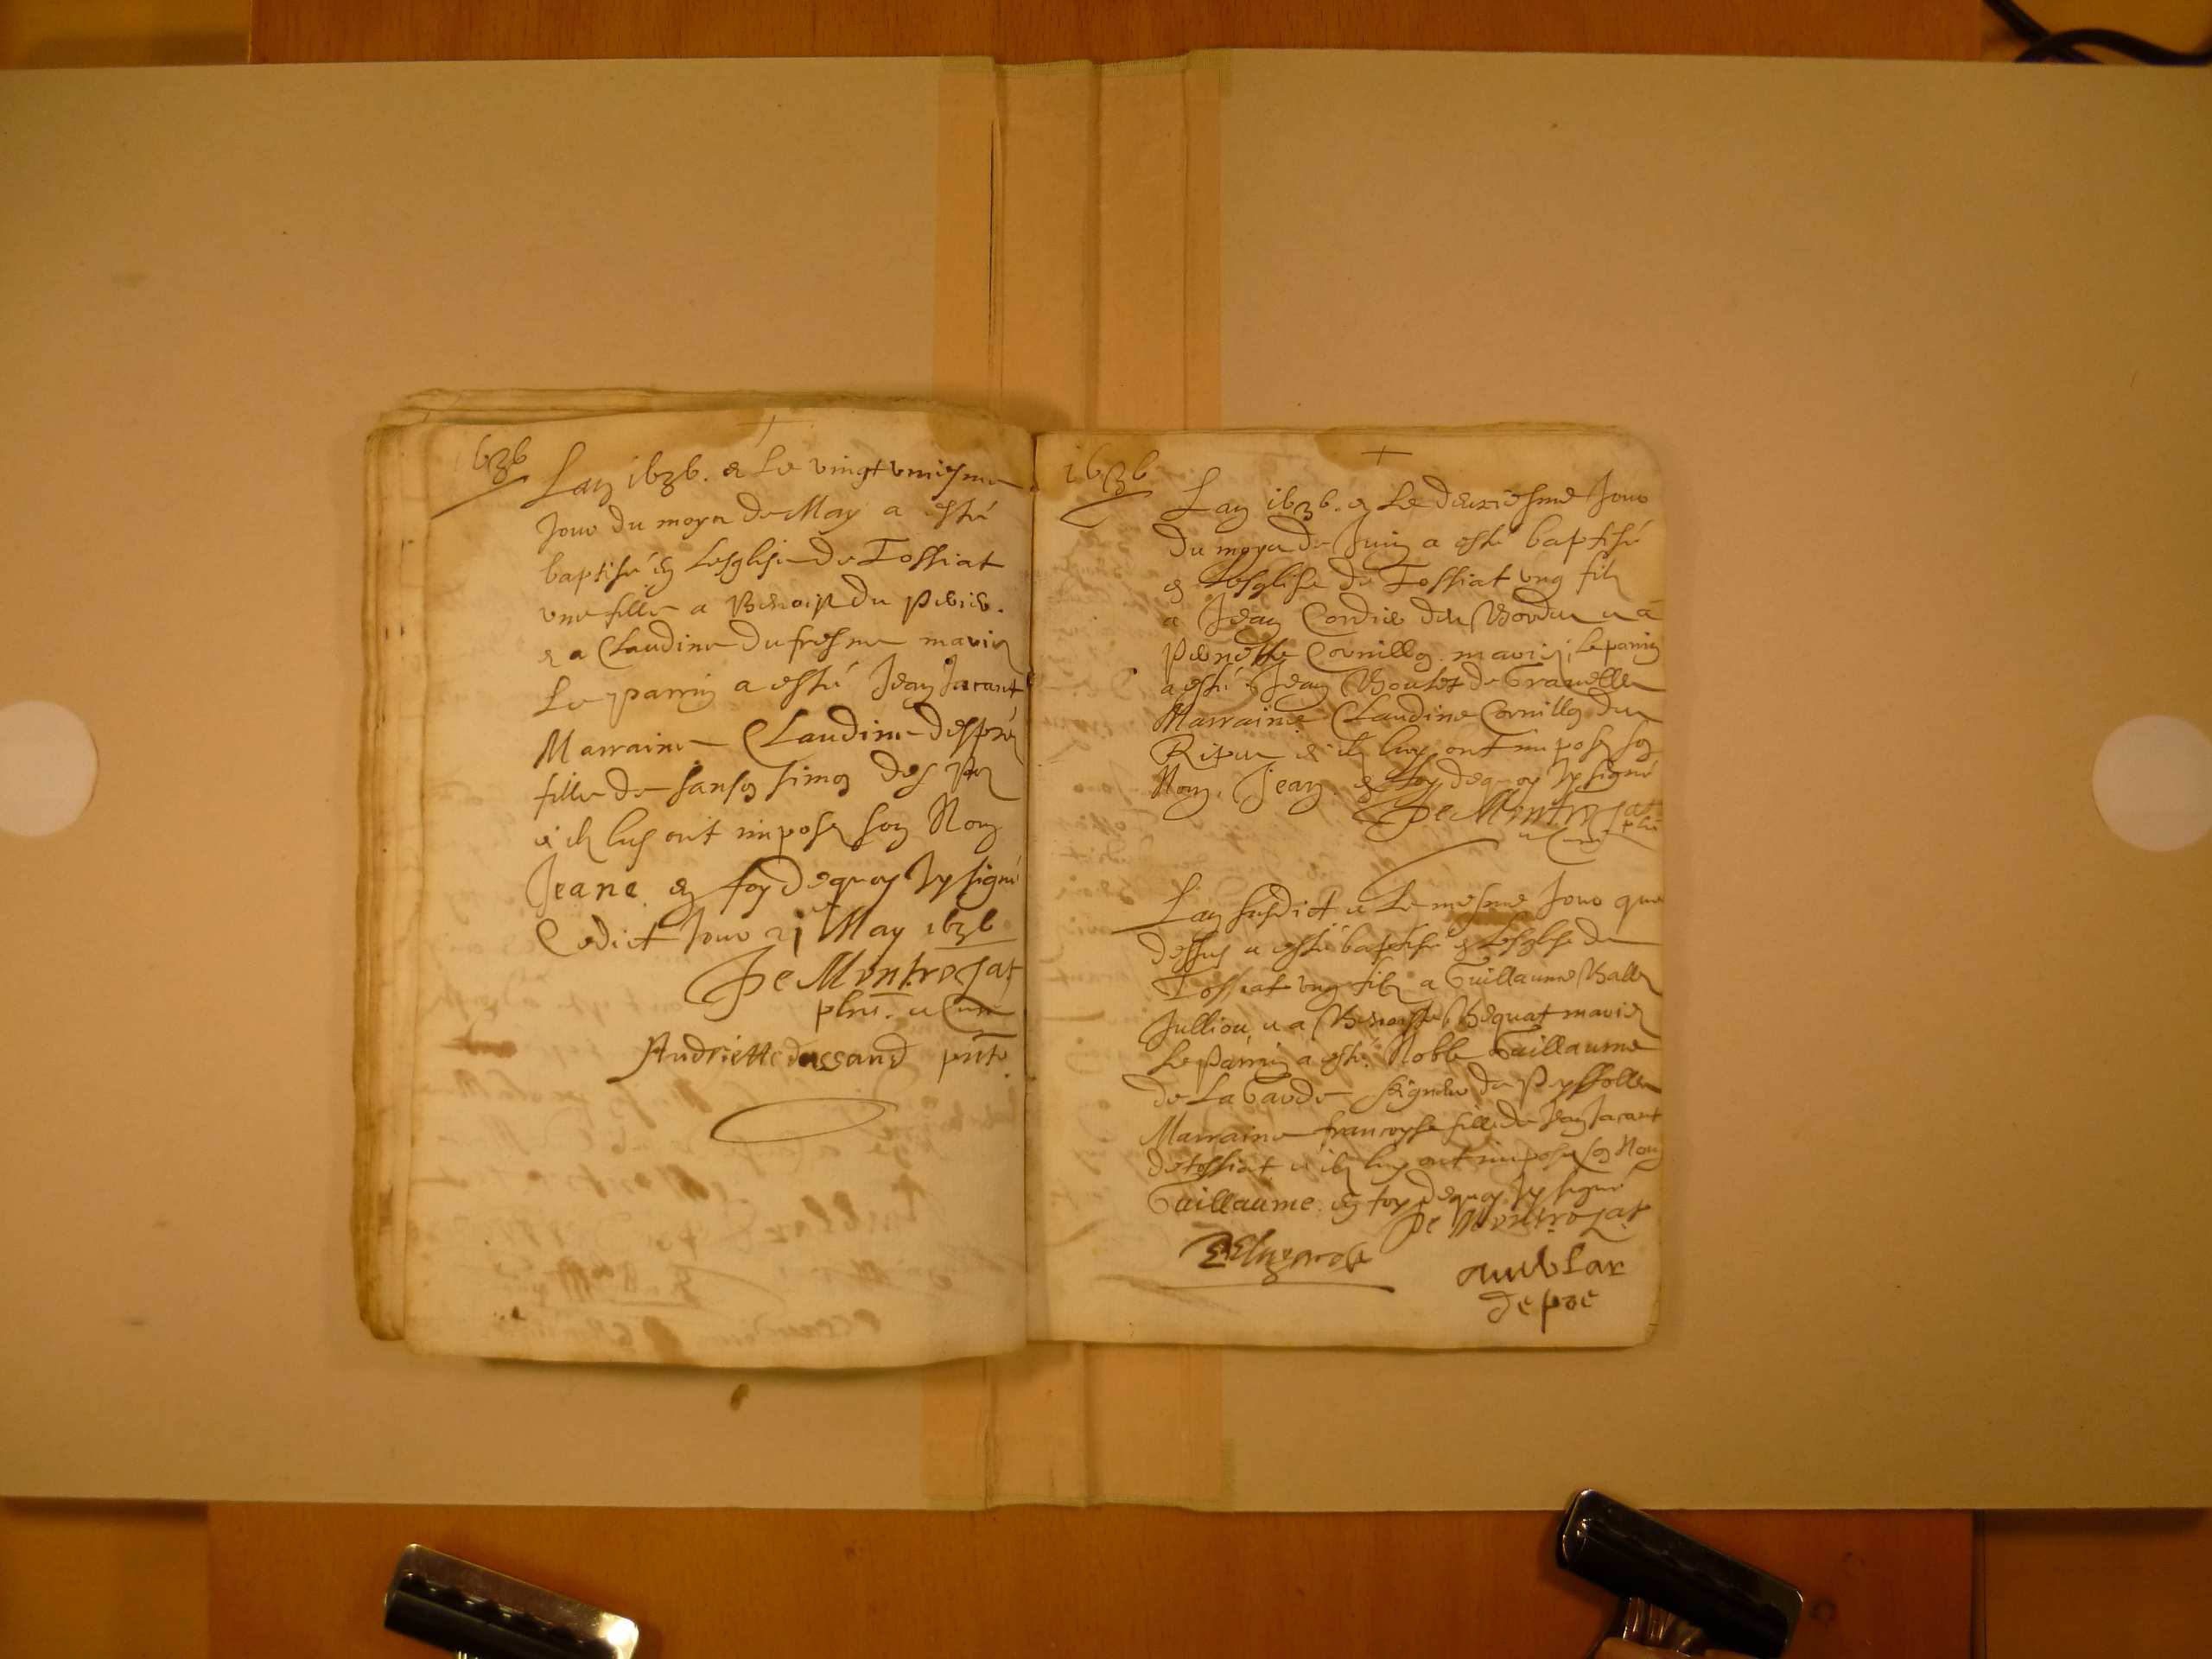 1636
Lan 1636. & Le vingt uniesme
Jour du moys de May a esté
baptisé en Lesglise de Tossiat
une fille a Benoist du Perier.
& a Claudine Dufresne mariez
Le parrin a esté Jean Jacant
Marraine Claudine despréz
fille de
& ilz luy ont imposez son Nom
Jeane en foy dequoy Jy signé
Cedict Jour 21 May 1636
De Montrozat
pbre. & Curé
Andriette dussand pnte.
1636
Lan 1636. & Le deuxiesme Jour
du moys de Juin a esté baptisé
en Lesglise de Tossiat ung filz
a Jean Cordier & a
Pernette Cornillon mariez, Le parrin
a esté Jean Boulet de
Marraine Claudine Cornillon du
& ilz luy ont imposez son
Nom. Jean. en foy dequoy Jy signé
De Montrozat
pbre
& Curé
Lan susdict & Le mesme Jour que
dessus a esté baptisé en Lesglise de
Tossiat ung filz a Guillaume
Julliou & a Benoiste Bequat mariez
Le Parrin a esté Noble Guillaume
de La Garde Seigneur de
Marraine francoyse fille de Jean Jacant
de tossiat & ilz luy ont imposez son Nom
Guillaume. en foy dequoy Jy signé
De Montrozat
depre